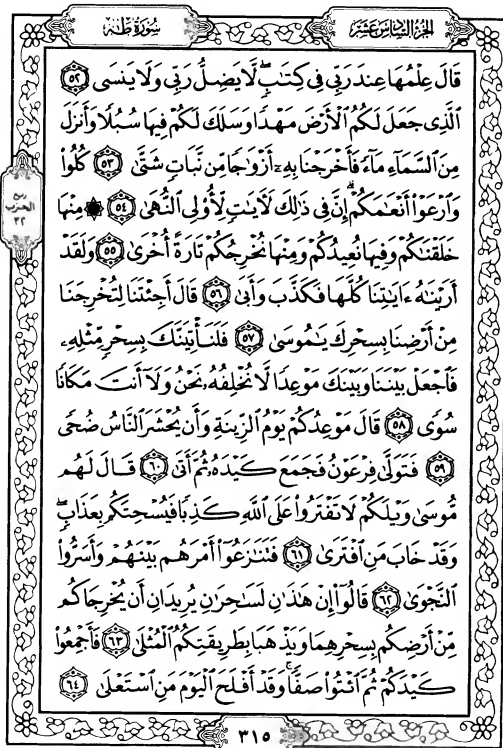 الجزء السادس عشر
سورة طه
قَالَ عِلْمُهَا عِندَ رَبِّي فِي كِتَٰبٍ لَّا يَضِلُّ رَبِّي وَلَا يَنسَى ٥٢
الَّذِي جَعَلَ لَكُمُ الْأَرْضَ مَهْدًا وَسَلَكَ لَكُمْ فِيهَا سُبُلًا وَأَنزَلَ
مِنَ السَّمَآءِ مَآءً فَأَخْرَجْنَا بِهِۦٓ أَزْوَٰجًا مِّن نَّبَاتٍ شَتَّىٰ ٥٣ كُلُوا۟
وَارْعَوْا۟ أَنْعَٰمَكُمْ ۗ إِنَّ فِي ذَٰلِكَ لَءَايَٰتٍ لِّأُو۟لِي النُّهَىٰ ٥٤ ۞ مِنْهَا
خَلَقْنَٰكُمْ وَفِيهَا نُعِيدُكُمْ وَمِنْهَا نُخْرِجُكُمْ تَارَةً أُخْرَىٰ ٥٥ وَلَقَدْ
أَرَيْنَٰهُ ءَايَٰتِنَا كُلَّهَا فَكَذَّبَ وَأَبَىٰ ٥٦ قَالَ أَجِئْتَنَا لِتُخْرِجَنَا
مِنْ أَرْضِنَا بِسِحْرِكَ يَٰمُوسَىٰ ٥٧ فَلَنَأْتِيَنَّكَ بِسِحْرٍ مِّثْلِهِۦ
فَاجْعَلْ بَيْنَنَا وَبَيْنَكَ مَوْعِدًا لَّا نُخْلِفُهُۥ نَحْنُ وَلَآ أَنتَ مَكَانًا
سُوًى ٥٨ قَالَ مَوْعِدُكُمْ يَوْمُ الزِّينَةِ وَأَن يُحْشَرَ النَّاسُ ضُحًى
٥٩ فَتَوَلَّىٰ فِرْعَوْنُ فَجَمَعَ كَيْدَهُۥ ثُمَّ أَتَىٰ ٦٠ قَالَ لَهُم
مُّوسَىٰ وَيْلَكُمْ لَا تَفْتَرُوا۟ عَلَى اللَّهِ كَذِبًا فَيُسْحِتَكُم بِعَذَابٍ ۖ
وَقَدْ خَابَ مَنِ افْتَرَىٰ ٦١ فَتَنَٰزَعُوٓا۟ أَمْرَهُم بَيْنَهُمْ وَأَسَرُّوا۟
النَّجْوَىٰ ٦٢ قَالُوٓا۟ إِنْ هَٰذَٰنِ لَسَٰحِرَٰنِ يُرِيدَانِ أَن يُخْرِجَاكُم
مِّنْ أَرْضِكُم بِسِحْرِهِمَا وَيَذْهَبَا بِطَرِيقَتِكُمُ الْمُثْلَىٰ ٦٣ فَأَجْمِعُوا۟
كَيْدَكُمْ ثُمَّ ائْتُوا۟ صَفًّا ۚ وَقَدْ أَفْلَحَ الْيَوْمَ مَنِ اسْتَعْلَىٰ ٦٤
ربع
الحزب
٣٢
٣١٥